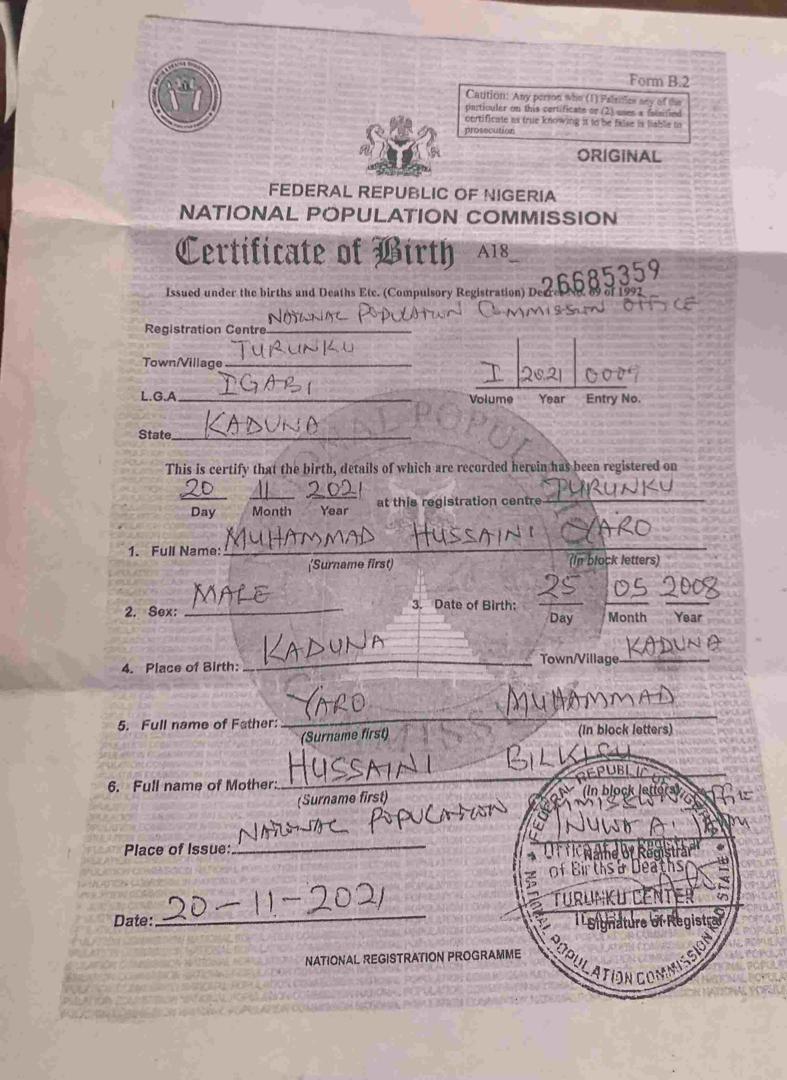 Form B.2
Caution: Any person who (1) Falsifies any of the
particuler on this certificate or (2) uses a falsified
certificate as true knowing it to be false is liable to
prosecution
ORIGINAL
FEDERAL REPUBLIC OF NIGERIA
NATIONAL POPULATION COMMISSION
Certificate of Birth A18_
26685359
Issued under the births and Deaths Etc. (Compulsory Registration) Decree No. 69 of 1992
Registration Centre NATIONAL POPULATION COMMISSION OFFICE
Town/Village TURUNKU
L.G.A IGABI
I 2021 0009
Volume Year Entry No.
State KADUNA
This is certify that the birth, details of which are recorded herein has been registered on
20 11 2021 at this registration centre TURUNKU
Day Month Year
1. Full Name: MUHAMMAD HUSSAINI YARO
(Surname first) (In block letters)
2. Sex: MALE 3. Date of Birth: 25 05 2008
Day Month Year
4. Place of Birth: KADUNA Town/Village KADUNA
5. Full name of Father: YARO MUHAMMAD
(Surname first) (In block letters)
6. Full name of Mother: HUSSAINI BILKISU
(Surname first) (In block letters)
Place of Issue: NATIONAL POPULATION Commission Office
INUWA A
Name of Registrar
of Births & Deaths
TURUNKU CENTER
Date: 20-11-2021
Signature of Registrar
FEDERAL REPUBLIC OF NIGERIA
NATIONAL POPULATION COMMISSION KAD STATE
NATIONAL REGISTRATION PROGRAMME